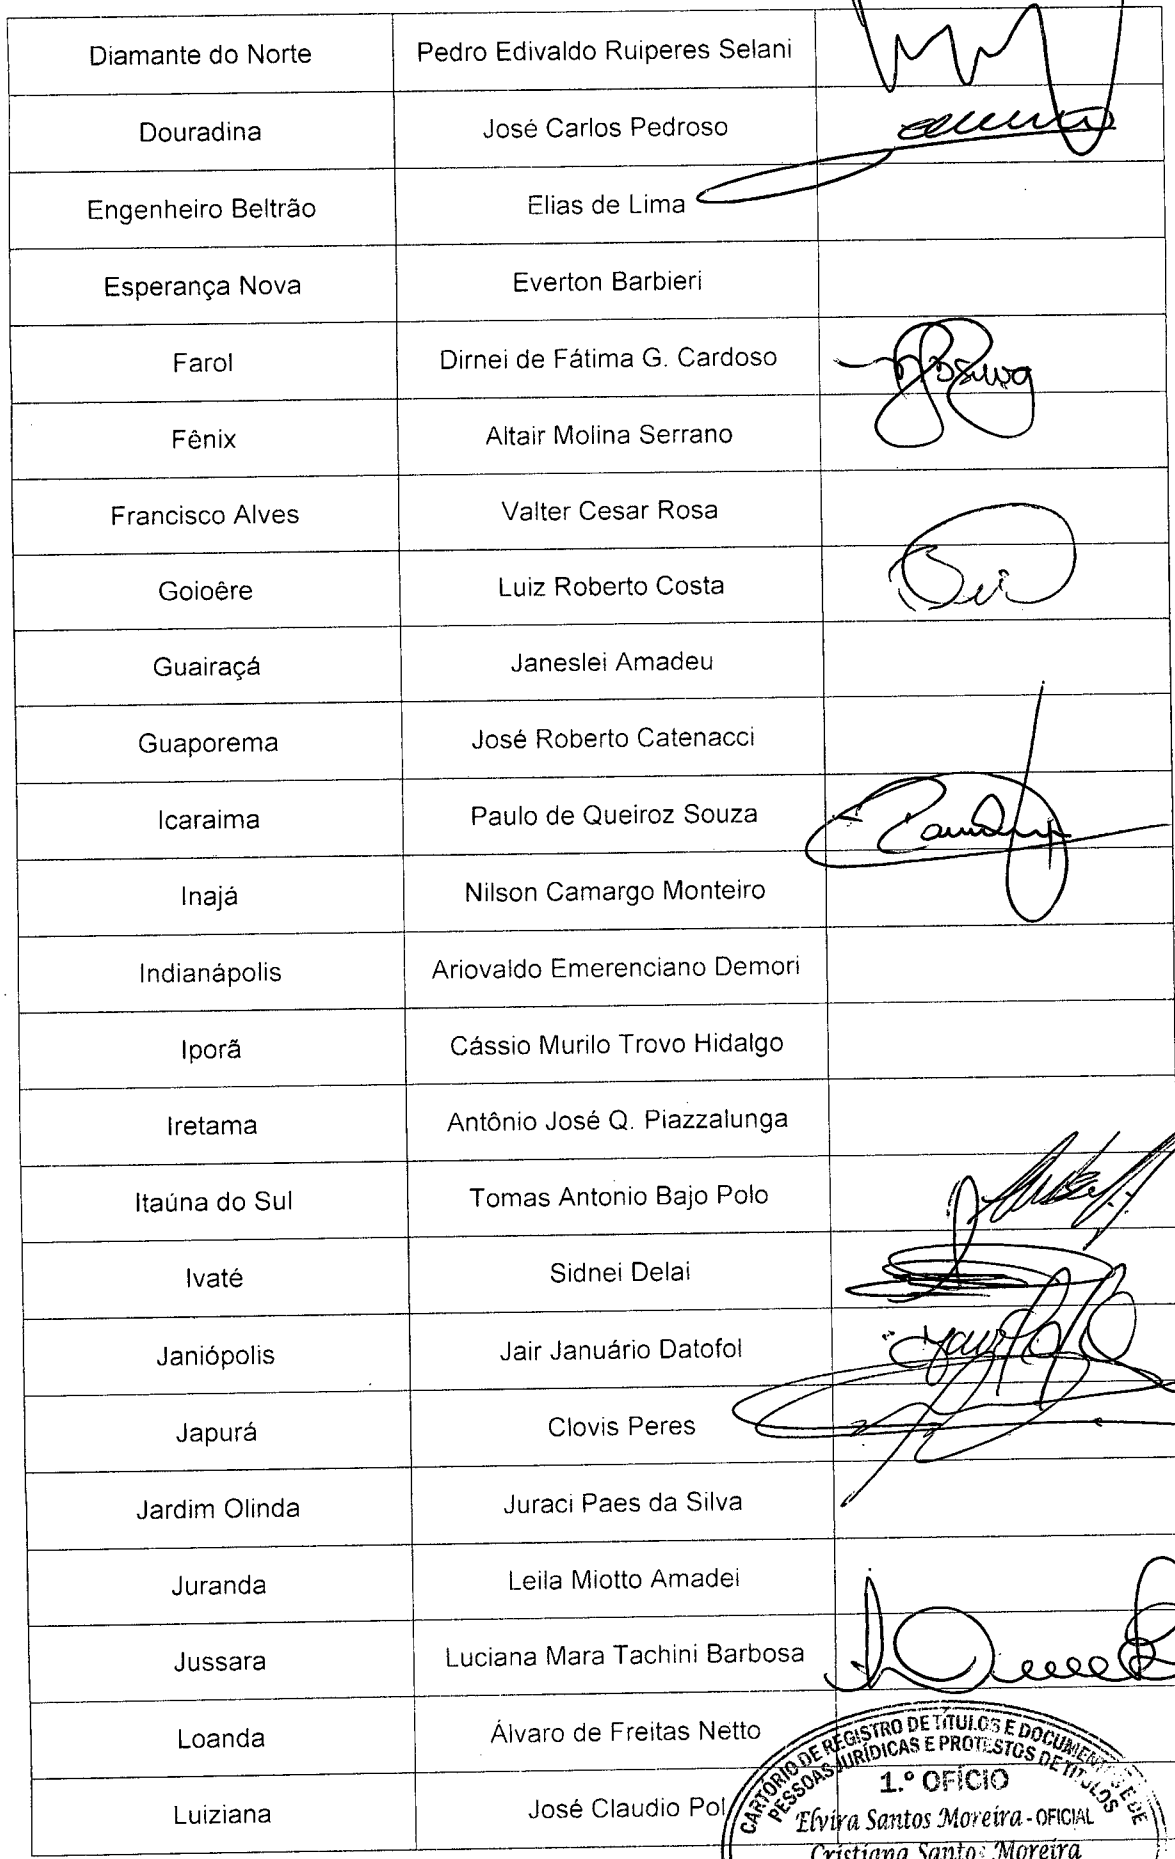 Diamante do Norte Pedro Edivaldo Ruiperes Selani
Douradina José Carlos Pedroso
Engenheiro Beltrão Elias de Lima
Esperança Nova Everton Barbieri
Farol Dirnei de Fátima G. Cardoso
Fênix Altair Molina Serrano
Francisco Alves Valter Cesar Rosa
Goioêre Luiz Roberto Costa
Guairaçá Janeslei Amadeu
Guaporema José Roberto Catenacci
Icaraima Paulo de Queiroz Souza
Inajá Nilson Camargo Monteiro
Indianápolis Ariovaldo Emerenciano Demori
Iporã Cássio Murilo Trovo Hidalgo
Iretama Antônio José Q. Piazzalunga
Itaúna do Sul Tomas Antonio Bajo Polo
Ivaté Sidnei Delai
Janiópolis Jair Januário Datofol
Japurá Clovis Peres
Jardim Olinda Juraci Paes da Silva
Juranda Leila Miotto Amadei
Jussara Luciana Mara Tachini Barbosa
Loanda Álvaro de Freitas Netto
Luiziana José Claudio Pol
CARTÓRIO DE REGISTRO DE TÍTULOS E DOCUMENTOS E DE
PESSOAS JURÍDICAS E PROTESTOS DE TÍTULOS
1.º OFÍCIO
Elvira Santos Moreira - OFICIAL
Cristiana Santos Moreira